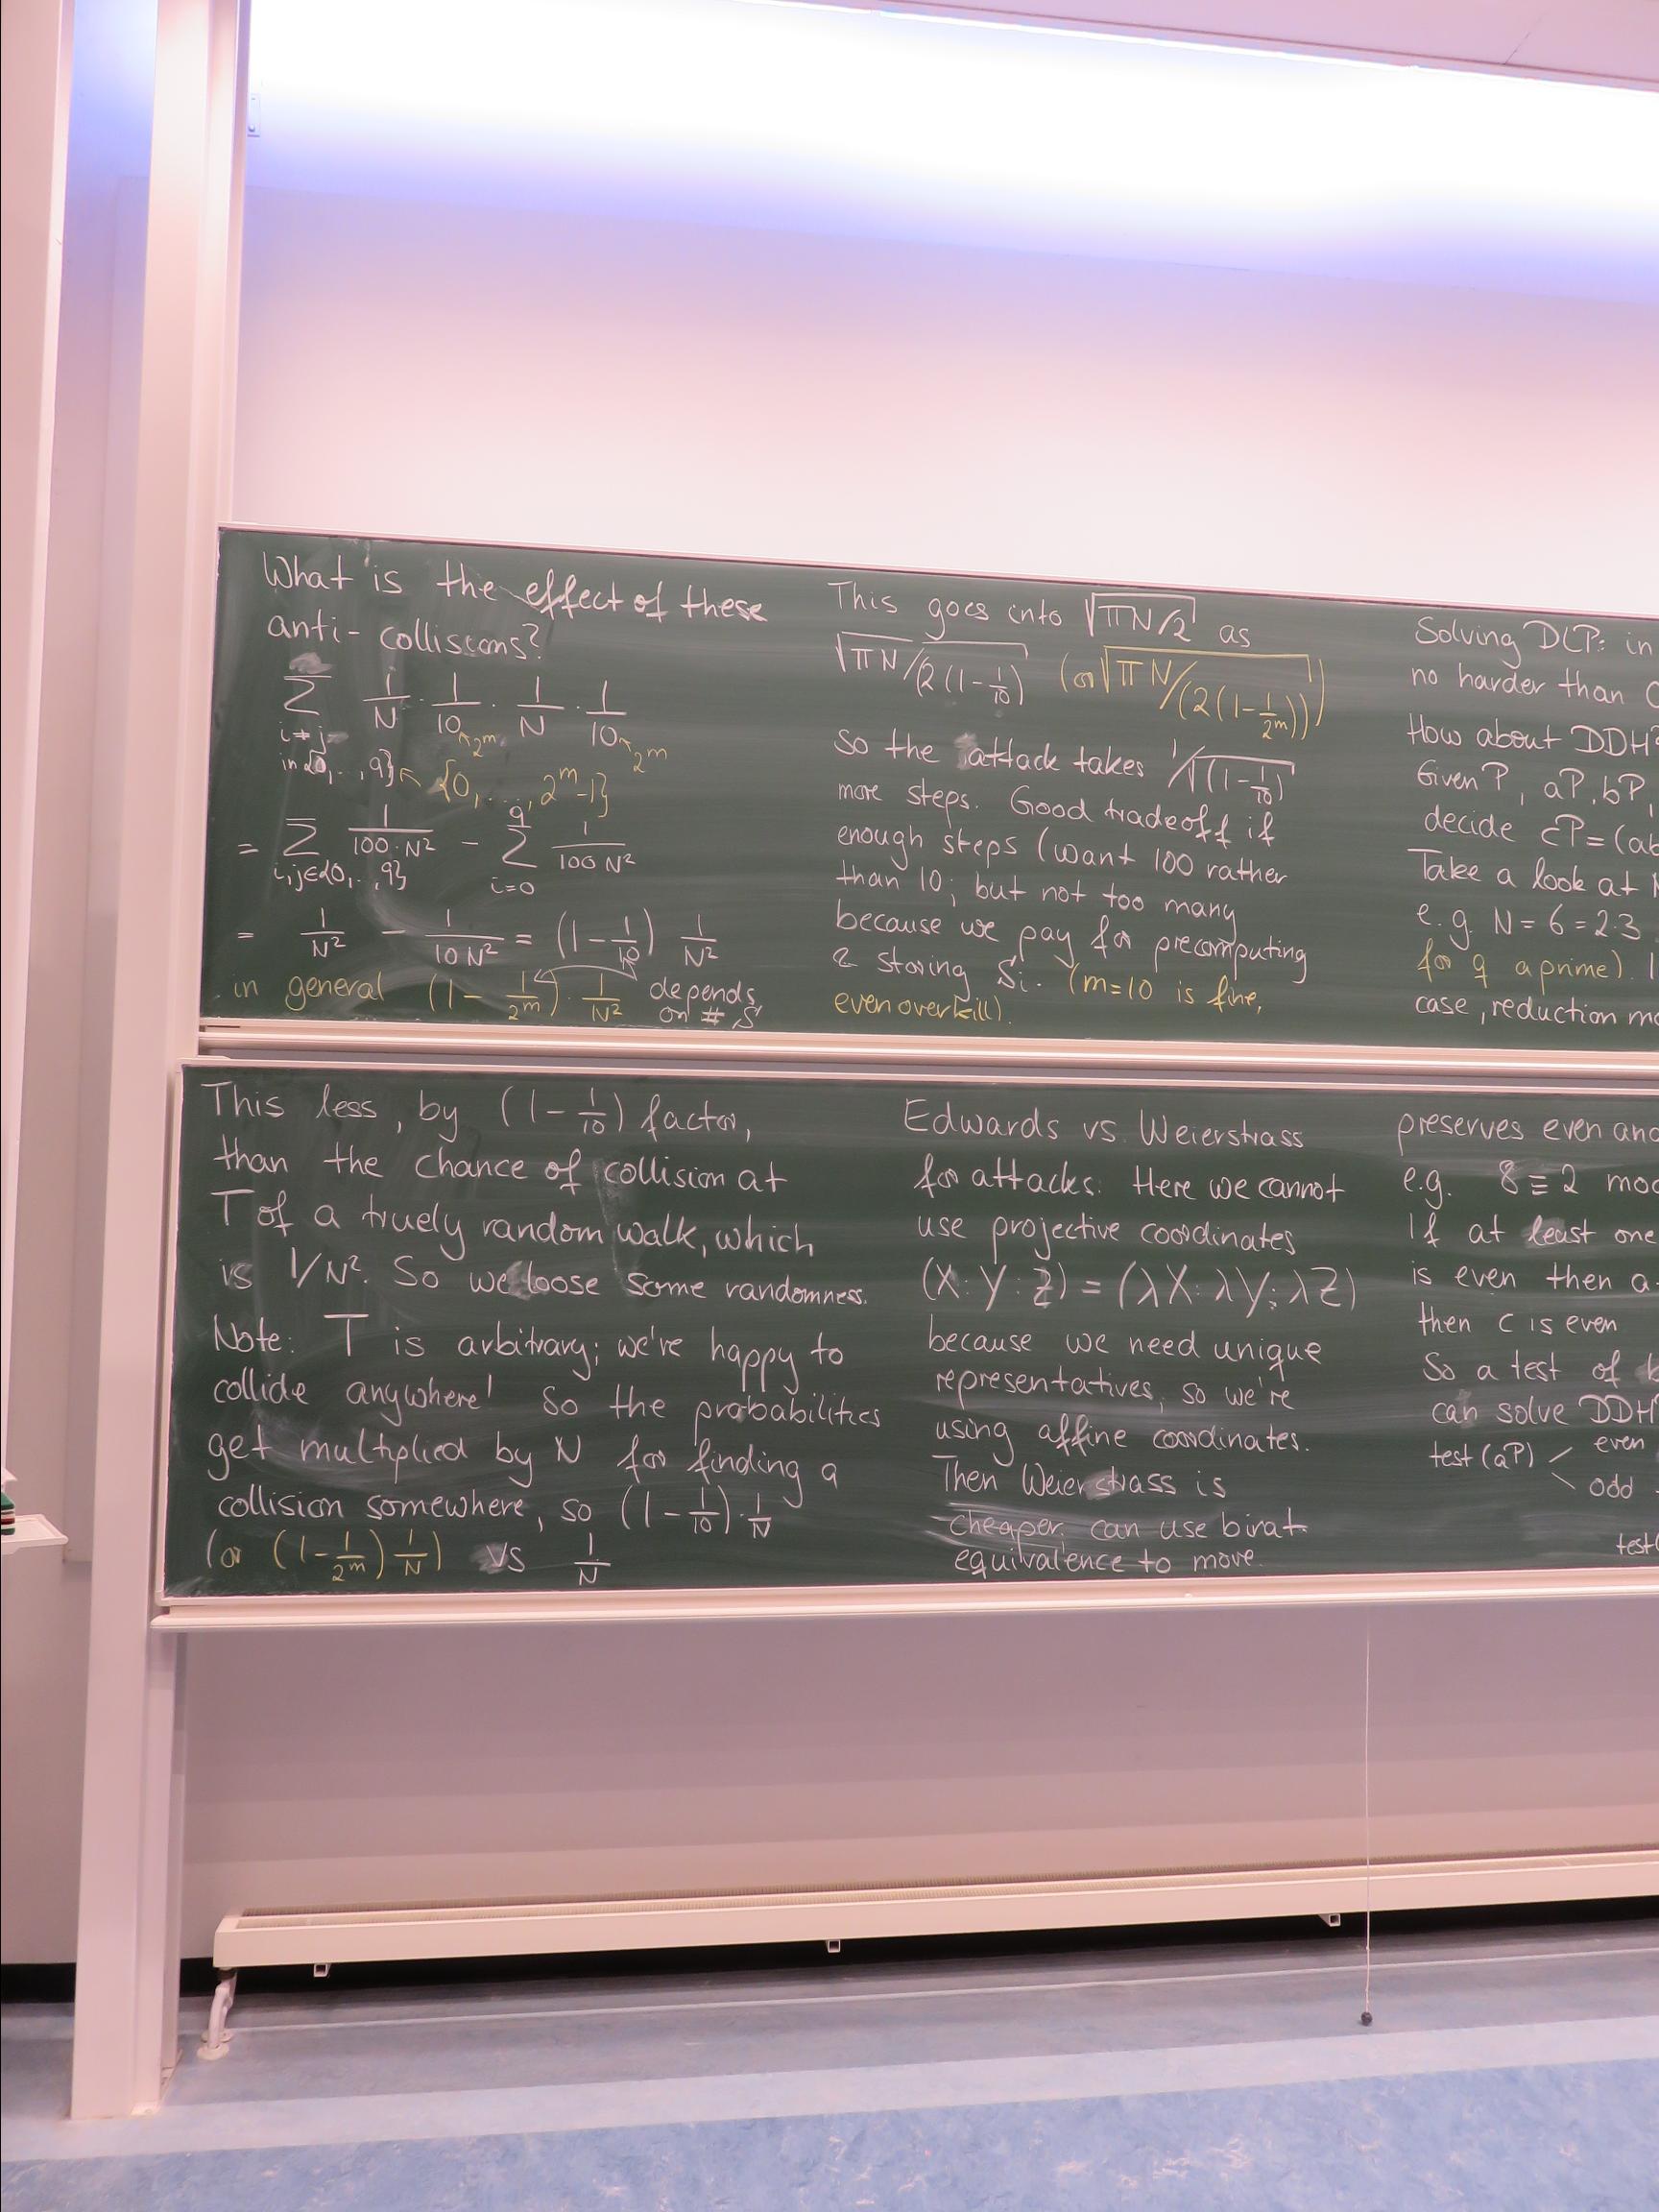 What is the effect of these
anti-collisions?
∑ 1/N · 1/10 · 1/N · 1/10
i≠j
2^m 2^m
in {0,..,9} {0,...,2^m-1}
= ∑ 1/(100·N²) - ∑ 1/(100 N²)
i,j∈{0,..,9} i=0 9
= 1/N² - 1/(10N²) = (1-1/10) 1/N²
in general (1-1/2^m)·1/N² depends
on # S
This goes into √(πN/2) as
√(πN/(2(1-1/10))) (or √(πN/(2(1-1/2^m))))
so the attack takes 1/√(1-1/10)
more steps. Good tradeoff if
enough steps (want 100 rather
than 10; but not too many
because we pay for precomputing
& storing Si. (m=10 is fine,
even overkill).
Solving DLP: in
no harder than
How about DDH?
Given P, aP, bP,
decide cP=(ab
Take a look at N
e.g. N=6=2·3
for q a prime).
case, reduction mo
This less, by (1-1/10) factor,
than the chance of collision at
T of a truely random walk, which
is 1/N². So we loose some randomness.
Note: T is arbitrary; we're happy to
collide anywhere! So the probabilities
get multiplied by N for finding a
collision somewhere, so (1-1/10)·1/N
(or (1-1/2^m) 1/N) vs 1/N
Edwards vs. Weierstrass
for attacks: Here we cannot
use projective coordinates
(X:Y:Z) = (λX:λY:λZ)
because we need unique
representatives, so we're
using affine coordinates.
Then Weierstrass is
cheaper, can use birat.
equivalence to move.
preserves even and
e.g. 8≡2 mod
If at least one
is even then a·
then c is even
So a test of
can solve DDH
test(aP) even
odd
test(